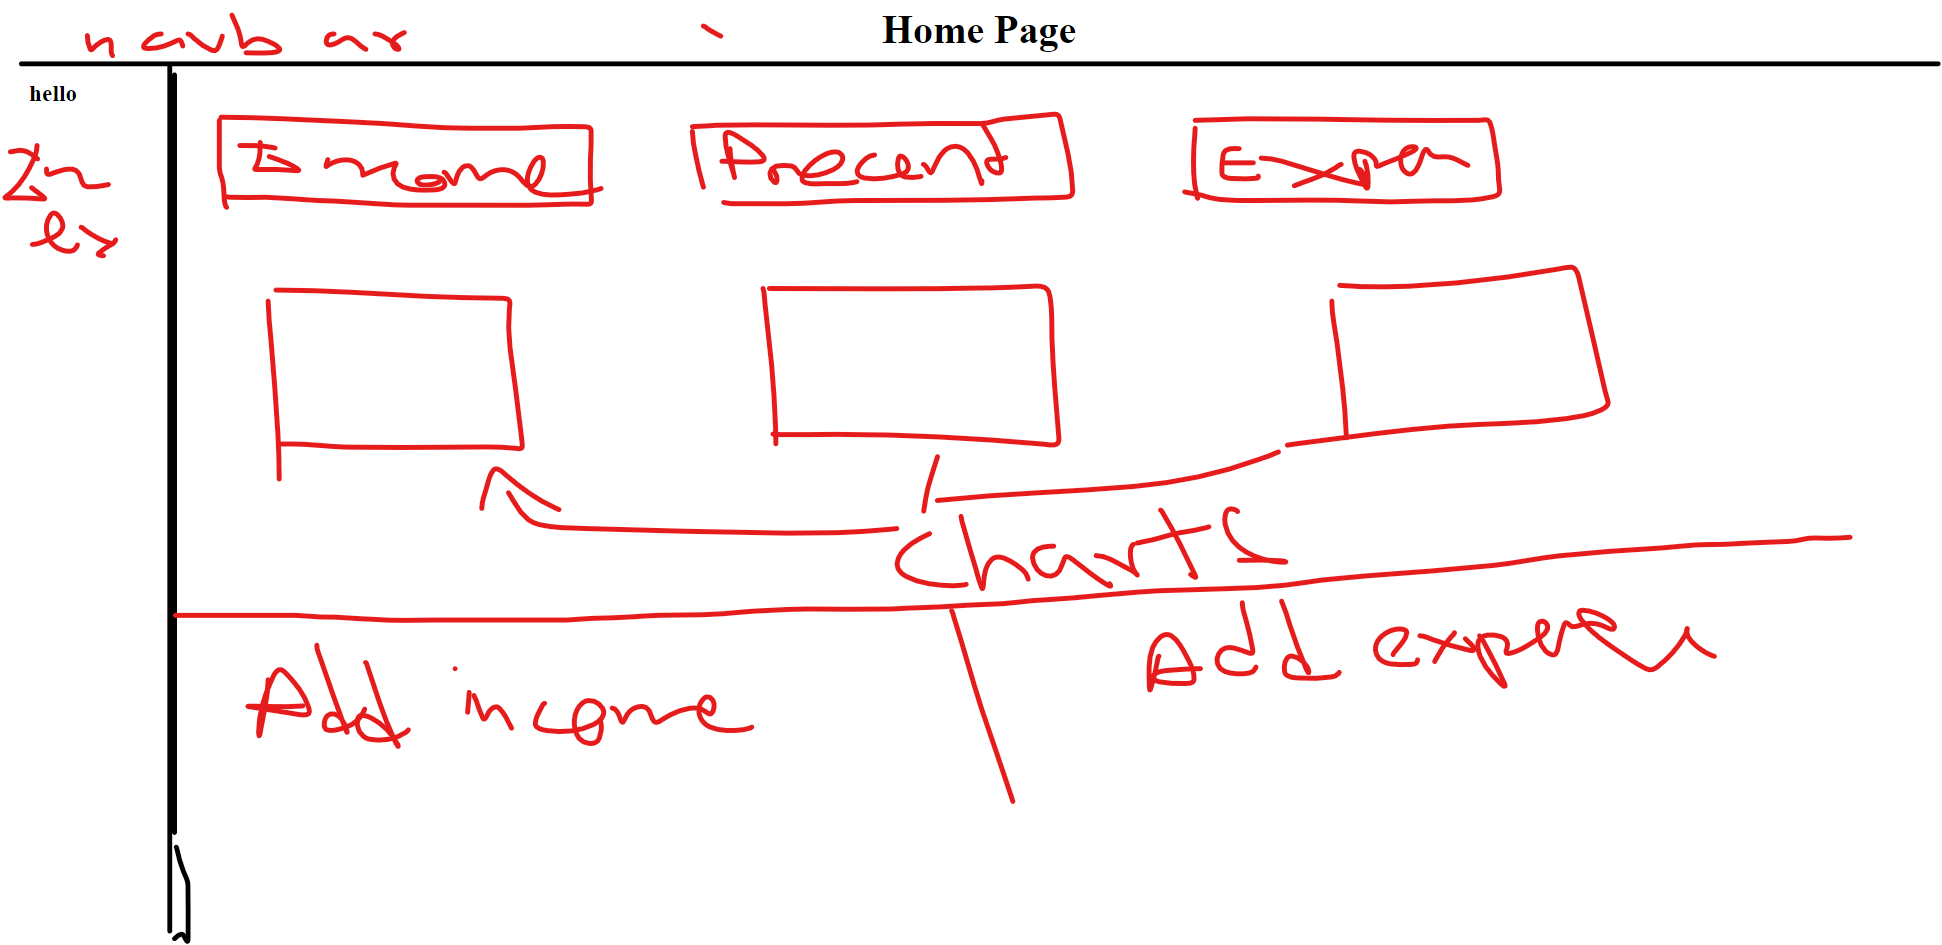 navbar
Home Page
hello
In
ex
Income
Present
Expen
Charts
Add income
Add expense